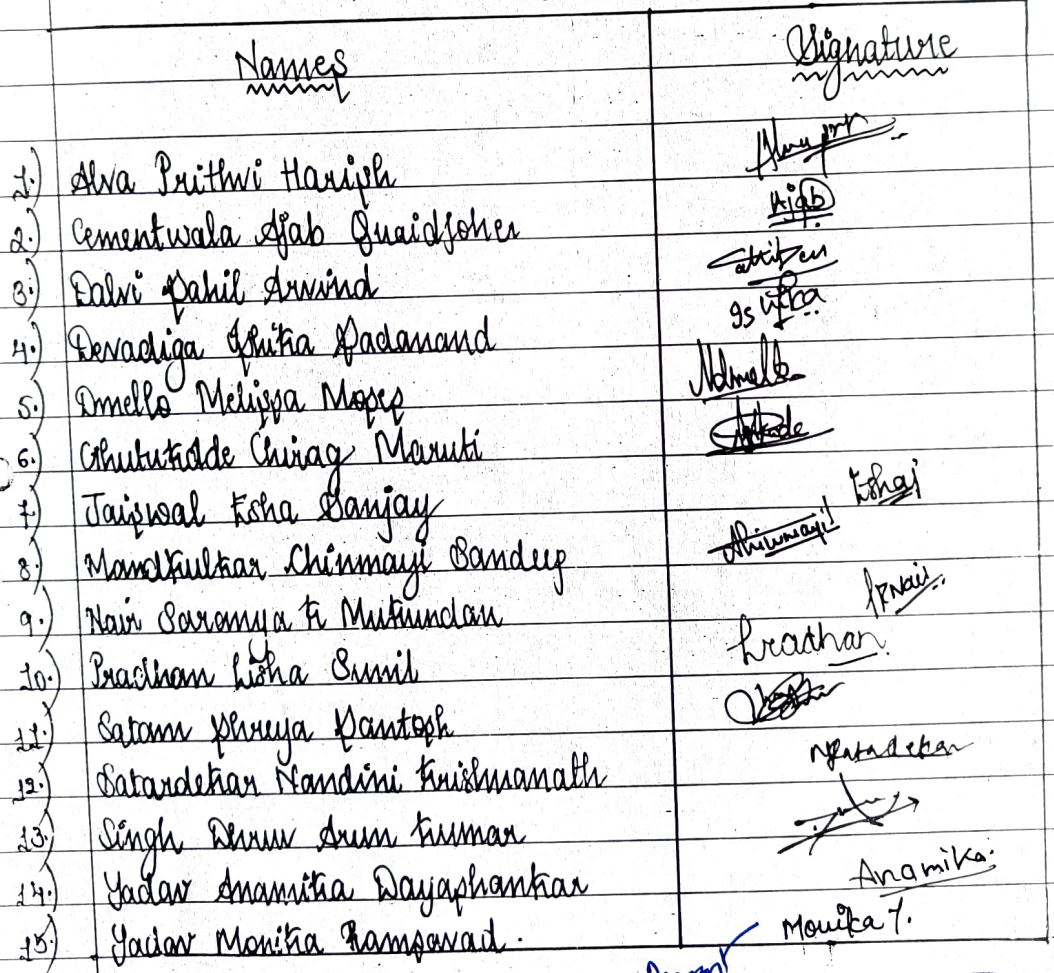 Names Signature
1.) Alva Prithvi Harish
2.) Cementwala Ajab Quaidjoher Ajab
3.) Dalvi Sahil Arvind
4.) Devadiga Ishika Sadanand
5.) Dmello Melissa Moses Ndmello
6.) Ghutukade Chirag Maruti
7.) Jaiswal Esha Sanjay Eshaj
8.) Mandkulkar Chinmayi Sandeep Chinmayi
9.) Nair Saranya K Mukundan SPNair
10.) Pradhan Lisha Sunil Lradhan
11.) Satam Shreya Santosh
12.) Satardekar Nandini Krishnanath
13.) Singh Dhruv Arun Kumar
14.) Yadav Anamika Dayashankar Anamika
15.) Yadav Monika Ramsavad. Monika Y.